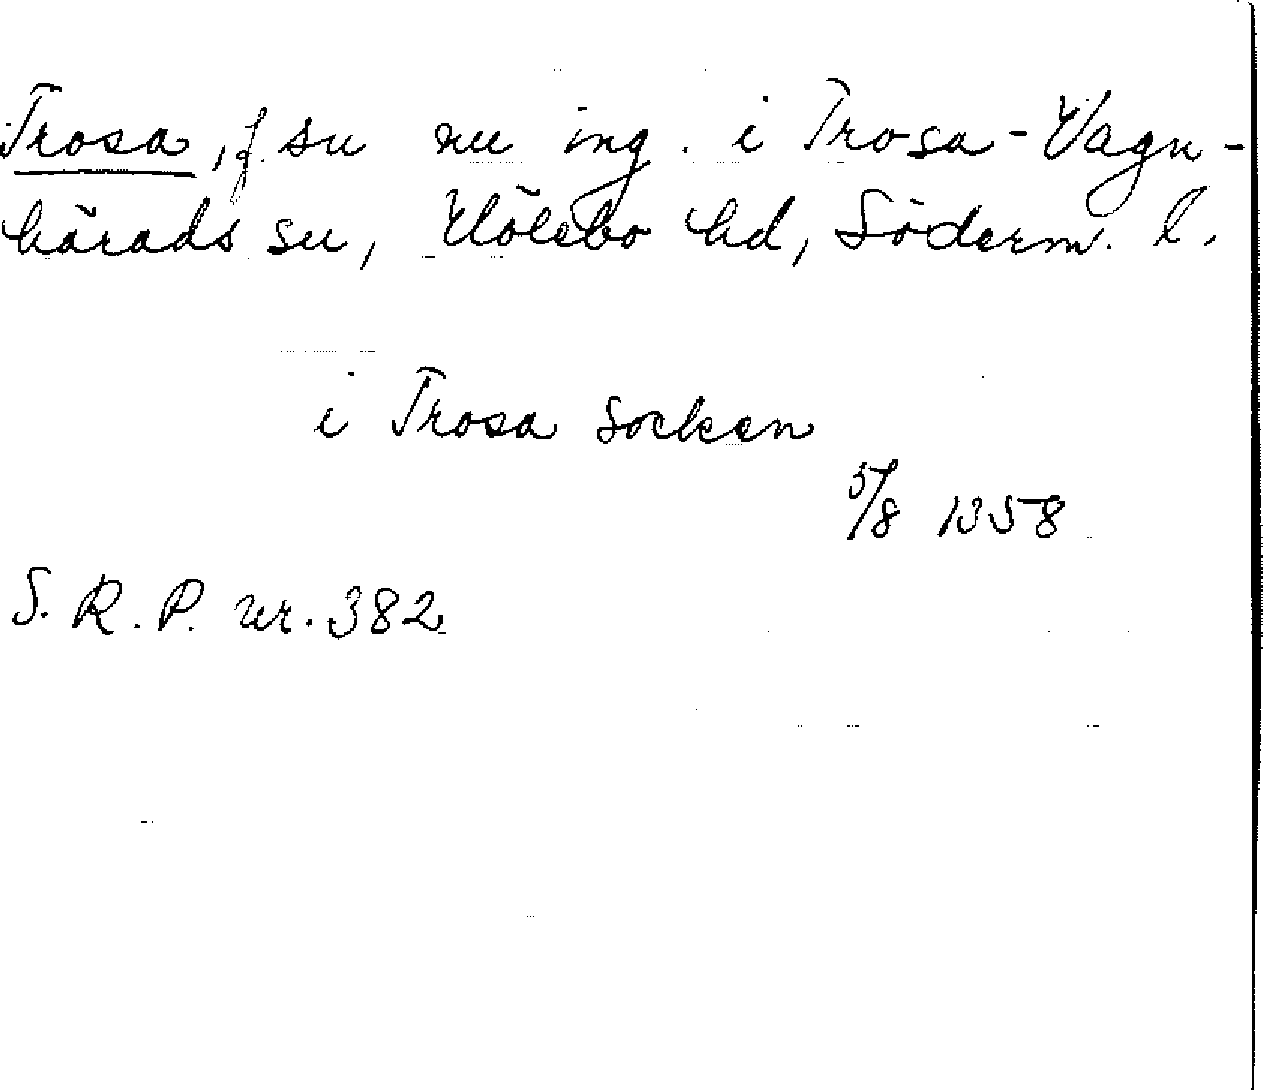 Trosa, f. sn nu ing. i Trosa-Vagn-
härads sn, Hölebo hd, Söderm. l.
i Trosa socken
5/8 1358
S. R. P. nr. 382